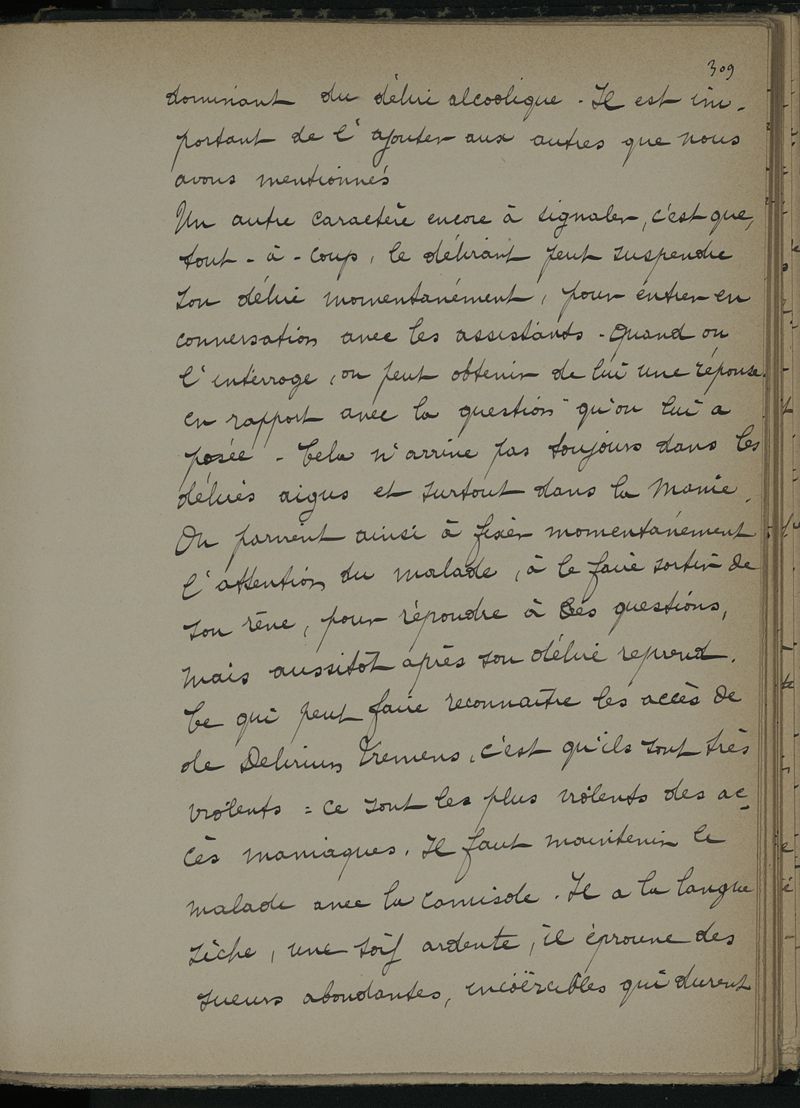 309
dominant du délire alcoolique. Il est im-
portant de l'ajouter aux autres que nous
avons mentionnés
Un autre caractère encore à signaler, c'est que,
tout-à-coup, le délirant peut suspendre
son délire momentanément, pour entrer en
conversation avec les assistants - Quand on
l'interroge, on peut obtenir de lui une réponse
en rapport avec la question qu'on lui a
posée - Cela n'arrive pas toujours dans les
délires aigus et surtout dans la Manie.
On parvient ainsi à fixer momentanément
l'attention du malade, à le faire sortir de
son rêve, pour répondre à des questions,
mais aussitôt après son délire reprend.
Ce qui peut faire reconnaître les accès de
de Delirium Tremens, c'est qu'ils sont très
violents = ce sont les plus violents des ac-
cès maniaques. Il faut maintenir le
malade avec la camisole. Il a la langue
sèche, une soif ardente, il éprouve des
sueurs abondantes, incoërcibles qui durent